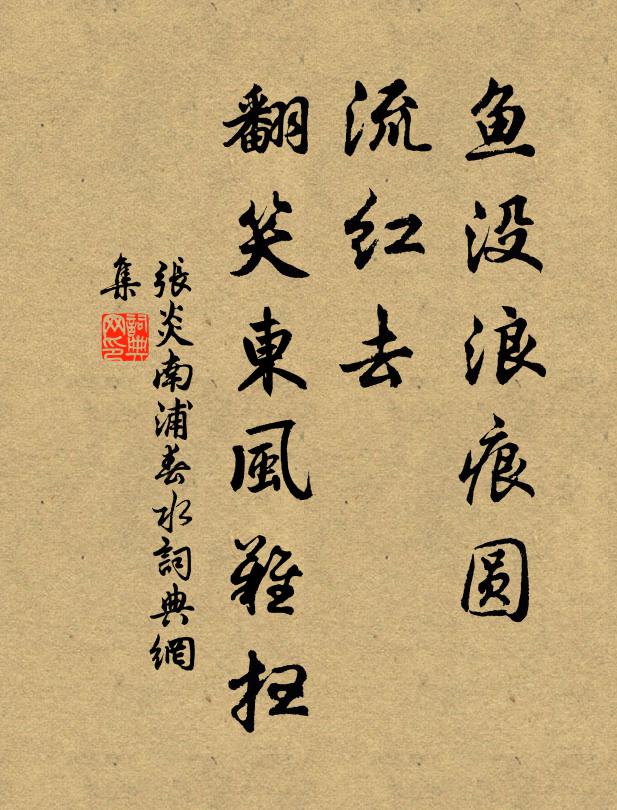 鱼没浪痕圆
流红去
翻笑東風難扫
張炎南浦春水詞典網
集
詞典
网印